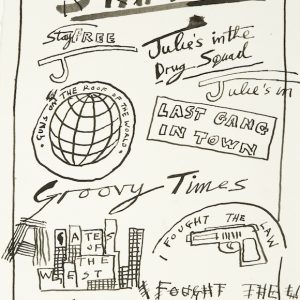 Stay FREE
Julie's in the
Drug Squad
J
Julie's in
GUNS ON THE ROOF OF THE WORLD
LAST GANG
IN TOWN
Groovy Times
GATES
OF
THE
WEST
I FOUGHT THE LAW
FOUGHT THE L